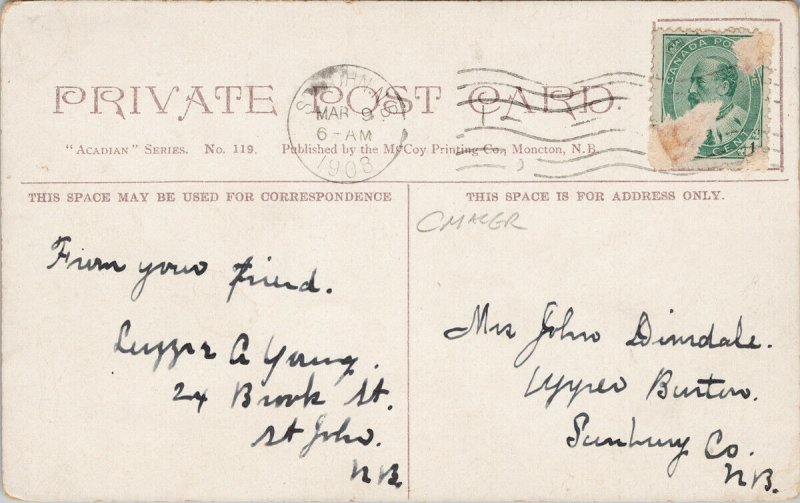 PRIVATE POST CARD.
"ACADIAN" SERIES. No. 119. Published by the McCoy Printing Co., Moncton, N.B.
MAR 9
6-AM
1908
CANADA POSTAGE
THIS SPACE MAY BE USED FOR CORRESPONDENCE
THIS SPACE IS FOR ADDRESS ONLY.
From your friend.
A Young.
24 Brook St.
St John.
N.B.
Mrs John Dinsdale.
Upper Burton.
Sunbury Co.
N.B.